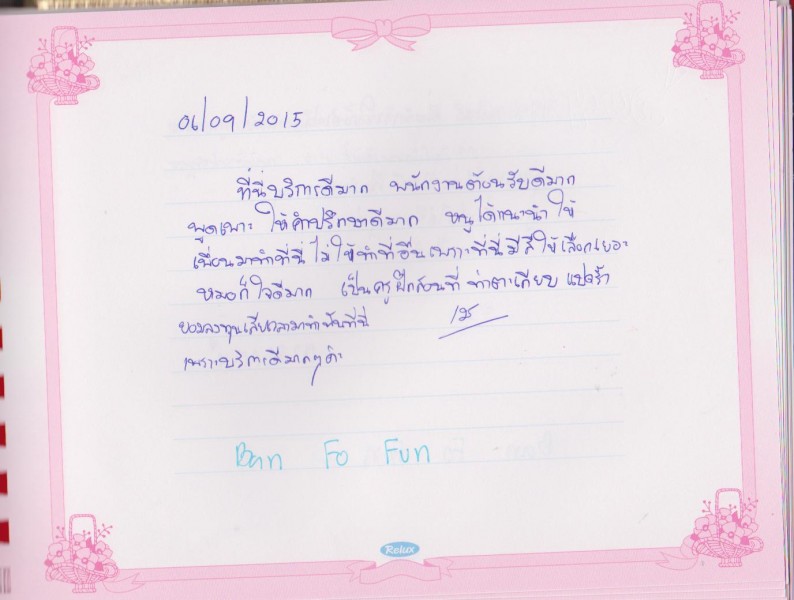 06/09/2015
ที่นี่บริการดีมาก พนักงานต้อนรับดีมาก
พูดเพราะ ให้คำปรึกษาดีมาก หนูได้แนะนำให้
เพื่อนมาทำที่นี่ ไม่ให้ทำที่อื่นเพราะที่นี่มีสีให้เลือกเยอะ
หมอก็ใจดีมาก เป็นครูฝึกสอนที่ ท่าตะเกียบ แปดริ้ว
ยอมลงทุนเสียเวลามาทำฟันที่นี่
เพราะบริการดีมากๆค่ะ
Ban Fo Fun
Relux